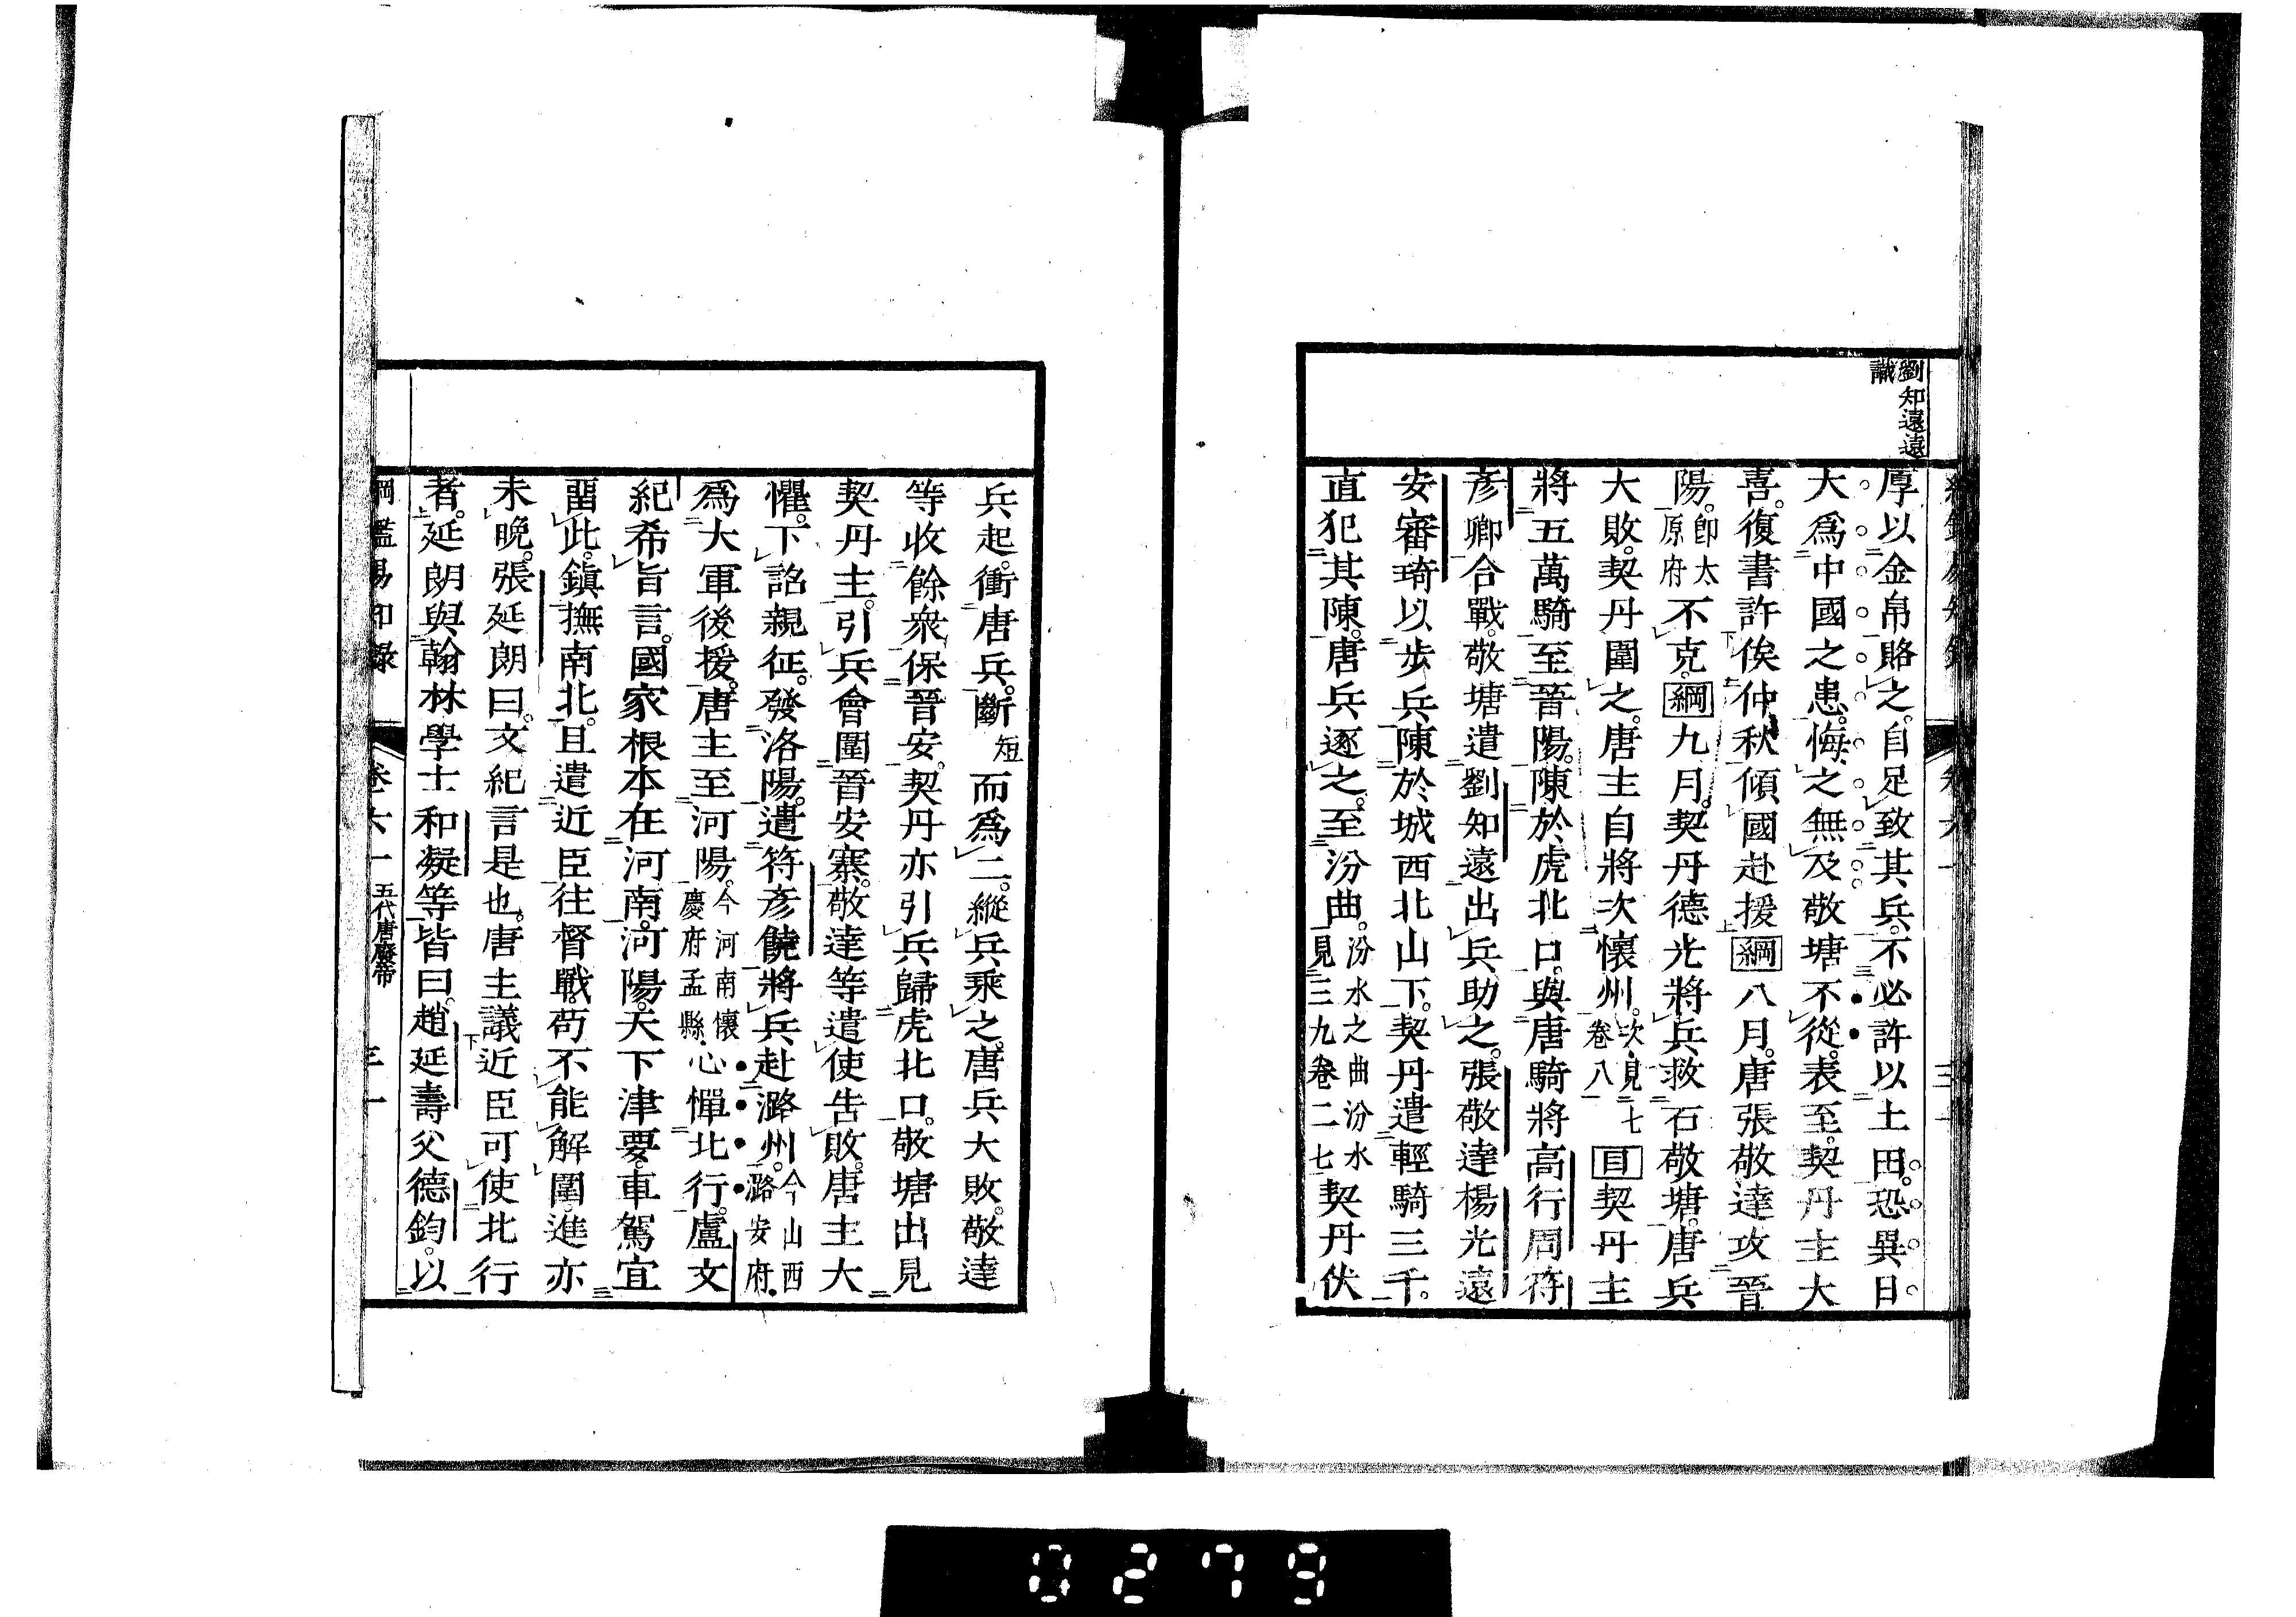 劉知遠遠
識
厚以金帛賂之。自足致其兵。不必許以土田。恐異日。
大爲中國之患。悔之無及敬塘不從。表至。契丹主大
喜。復書許俟仲秋傾國赴援綱八月。唐張敬達攻晉
陽。卽太原府不克。綱九月。契丹德光將兵救石敬塘。唐兵
大敗。契丹圍之。唐主自將次懷州。次見七卷八目契丹主
將五萬騎至晉陽。陳於虎北口。與唐騎將高行周符
彥卿合戰。敬塘遣劉知遠出兵助之。張敬達楊光遠
安審琦以步兵陳於城西北山下。契丹遣輕騎三千。
直犯其陳。唐兵逐之。至汾曲。汾水之曲汾水見三九卷二七契丹伏
兵起。衝唐兵。斷短而爲二。縱兵乘之。唐兵大敗。敬達
等收餘衆保晉安。契丹亦引兵歸虎北口。敬塘出見
契丹主。引兵會圍晉安寨。敬達等遣使告敗。唐主大
懼。下詔親征。發洛陽。遣符彥饒將兵赴潞州。今山西潞安府
爲大軍後援。唐主至河陽。今河南懷慶府孟縣心憚北行。盧文
紀希旨言。國家根本在河南。河陽。天下津要。車駕宜
畱此。鎭撫南北。且遣近臣往督戰。苟不能解圍。進亦
未晚。張延朗曰。文紀言是也。唐主議近臣可使北行
者。延朗與翰林學士和凝等皆曰。趙延壽父德鈞。以
綱鑑易知錄 卷六一 五代唐廢帝 三一